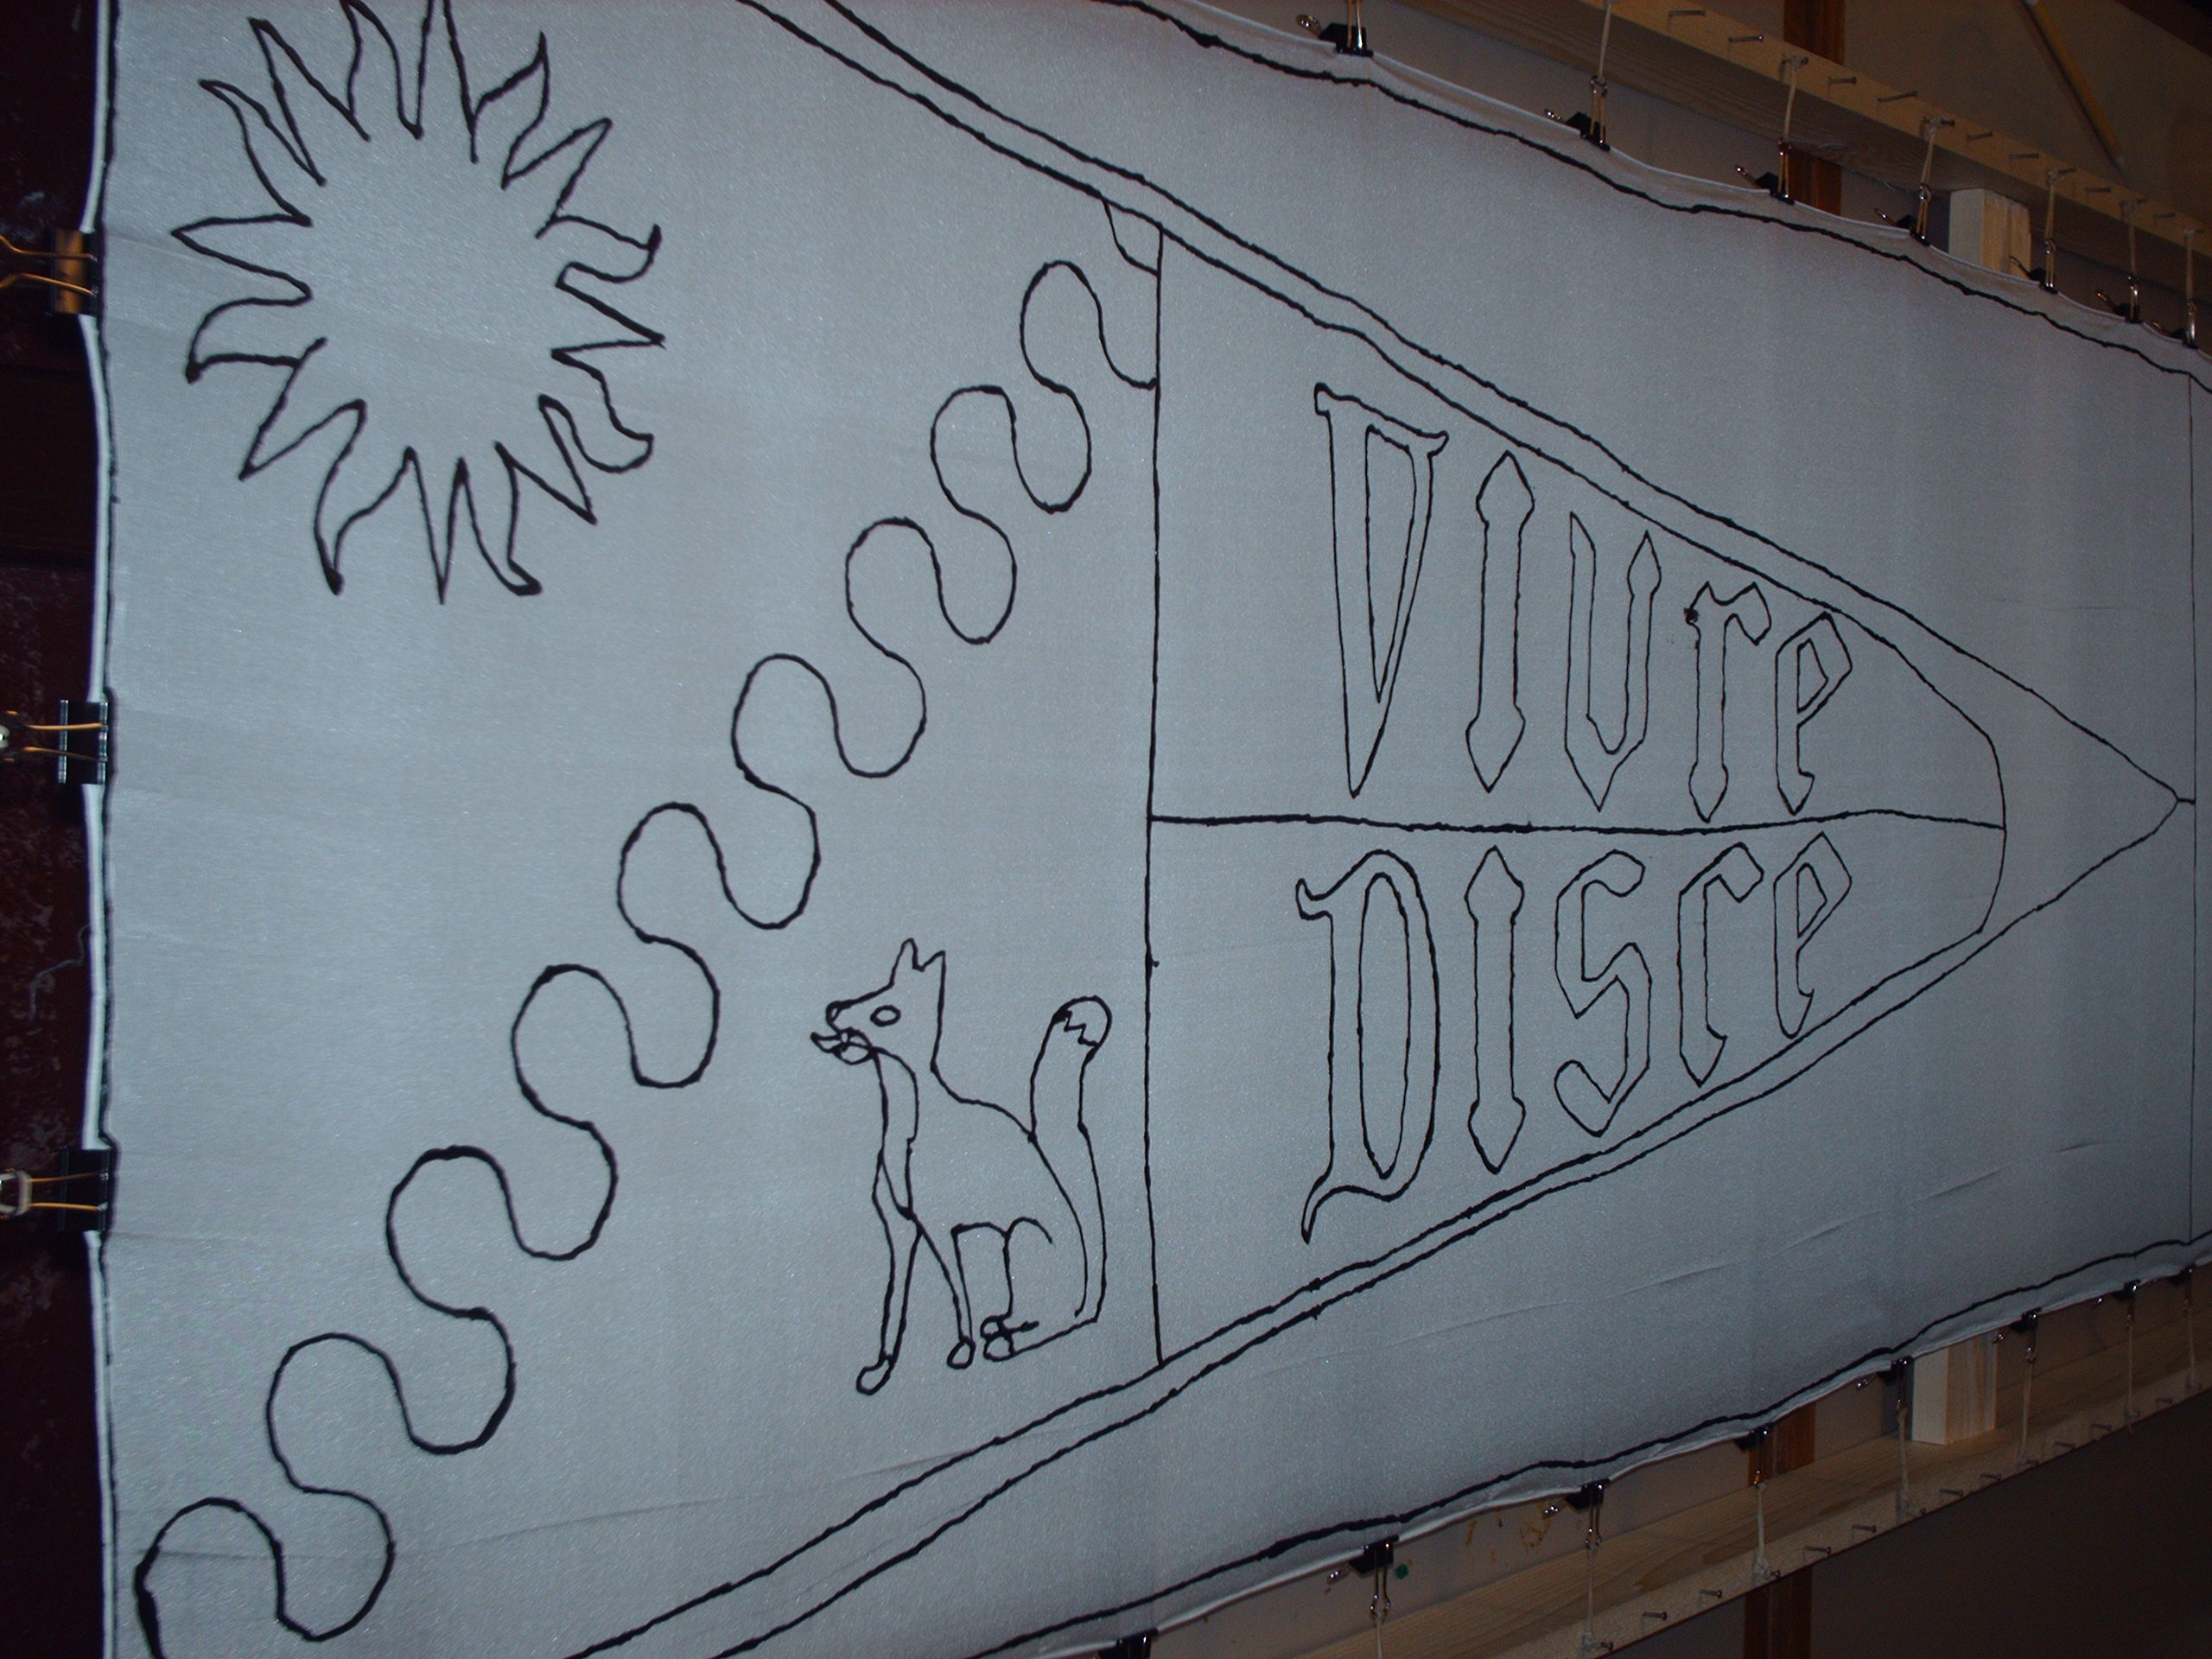 Vivre
Disce